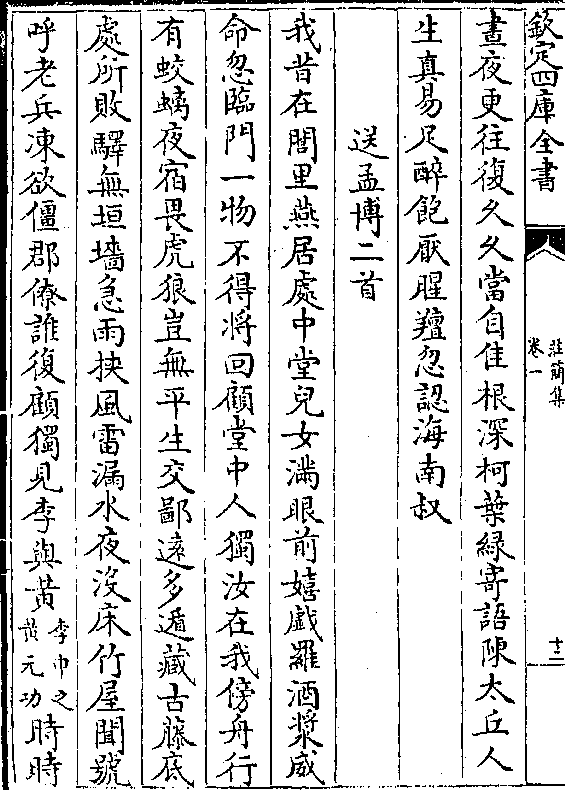 欽定四庫全書
莊簡集
卷一
十二
晝夜更往復久久當自佳根深柯葉緑寄語陳太丘人
生真易足醉飽厭腥羶忽認海南叔
送孟博二首
我昔在閭里燕居處中堂兒女滿眼前嬉戲羅酒漿威
命忽臨門一物不得將回顧堂中人獨汝在我傍舟行
有蛟螭夜宿畏虎狼豈無平生交鄙逺多遁藏古藤底
處所敗驛無垣墻急雨挾風雷漏水夜没床竹屋聞號
呼老兵凍欲僵郡僚誰復顧獨見李與黄李申之黄元功時時